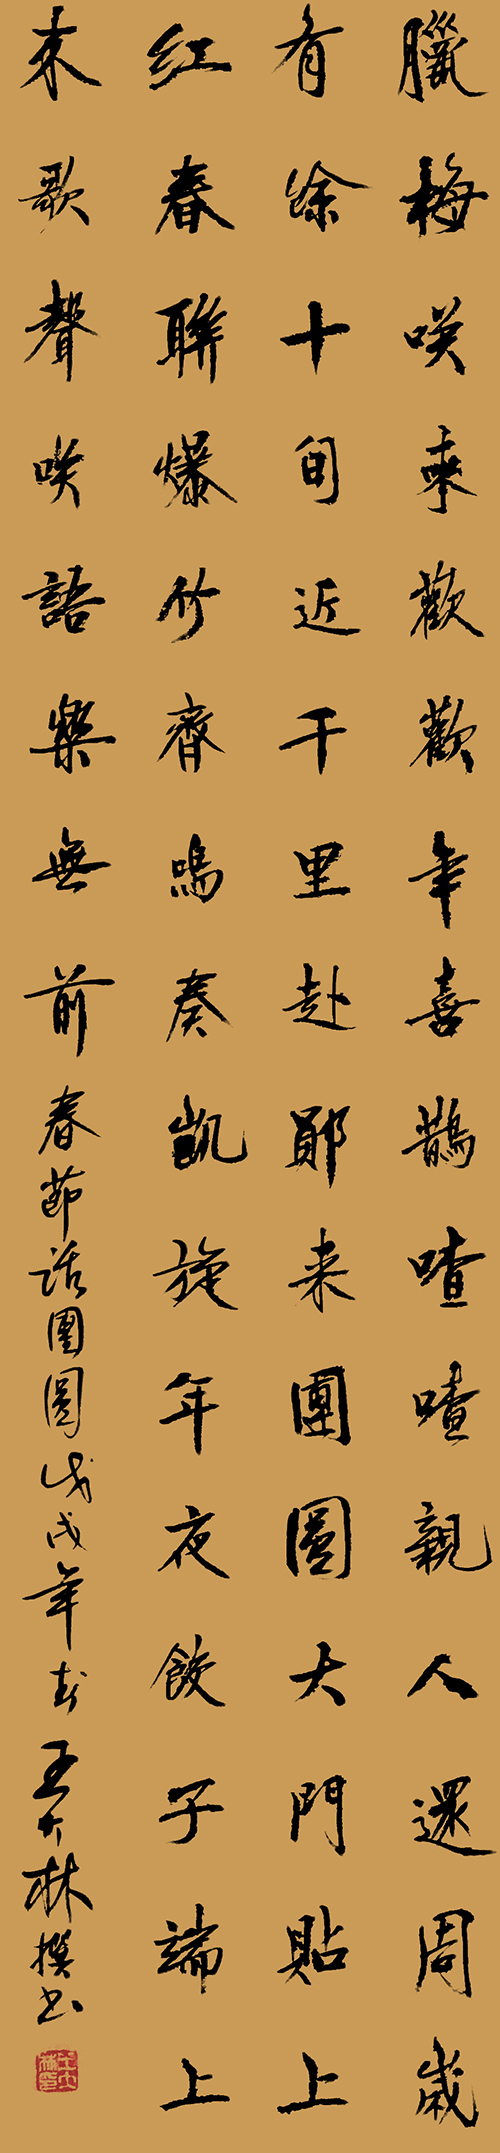 臘梅咲来歡歡年喜鵲喳喳親人還周歲
有餘十旬近千里赴鄖来團圓大門貼上
紅春聯爆竹齊鳴奏凱旋年夜餃子端上
来歌聲咲語樂無前春節話團圓戊戌年王大林撰书